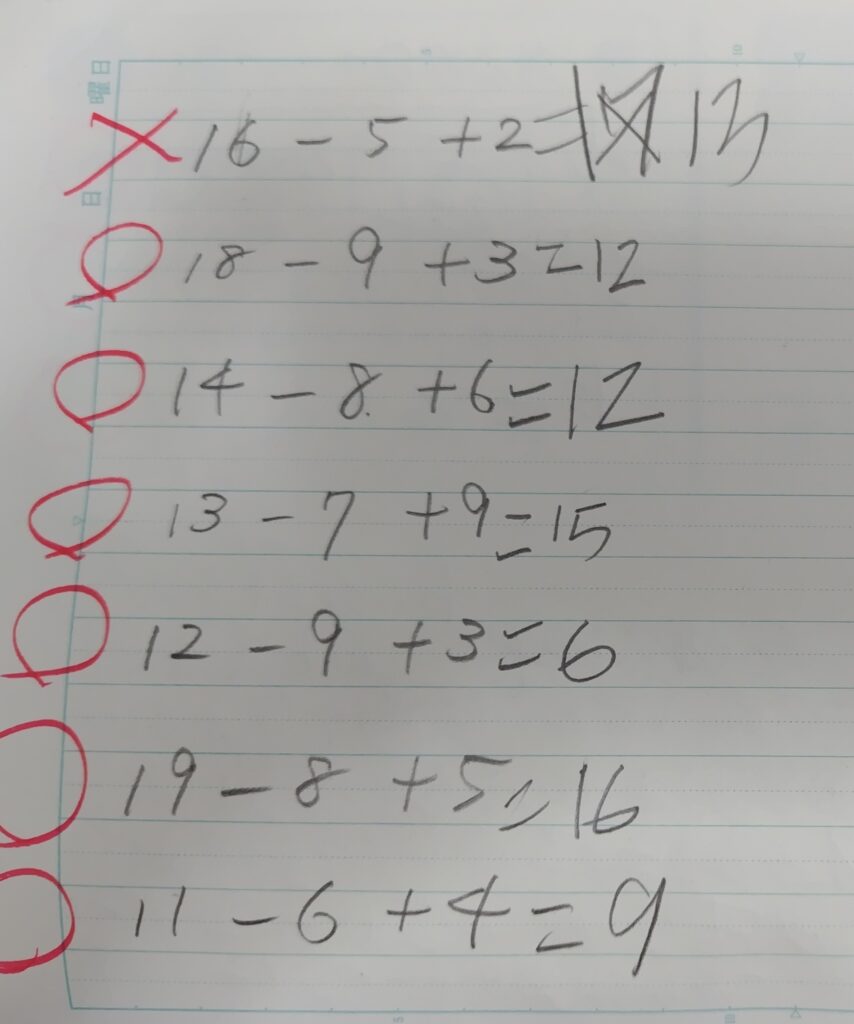 16 - 5 + 2 = 13
18 - 9 + 3 = 12
14 - 8 + 6 = 12
13 - 7 + 9 = 15
12 - 9 + 3 = 6
19 - 8 + 5 = 16
11 - 6 + 4 = 9